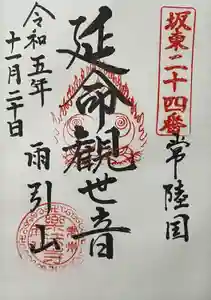 坂東二十四番
常陸国
延命観世音
雨引山
令和五年
十一月二十日